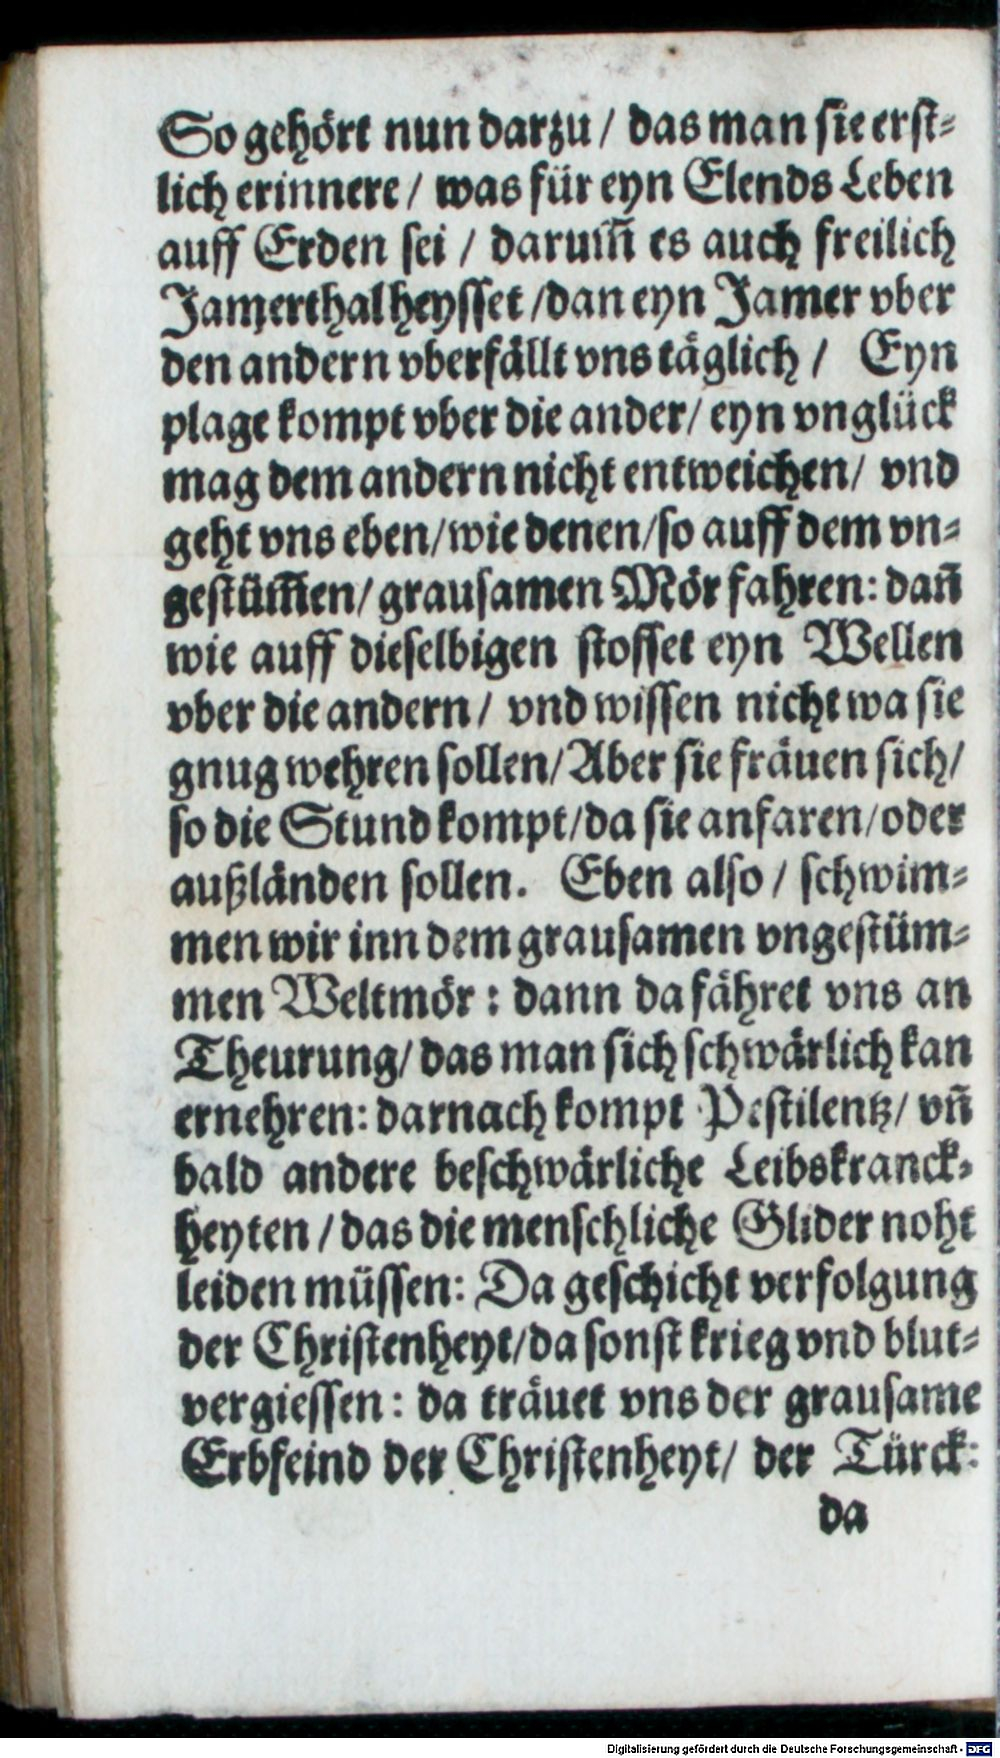 So gehört nun darzu / das man sie erst-
lich erinnere / was für eyn Elends Leben
auff Erden sei / darum̃ es auch freilich
Jamerthal heysset / dan eyn Jamer vber
den andern vberfällt vns täglich / Eyn
plage kompt vber die ander / eyn vnglück
mag dem andern nicht entweichen / vnd
geht vns eben / wie denen / so auff dem vn-
gestüm̃en / grausamen Mör fahren: dañ
wie auff dieselbigen stosset eyn Wellen
vber die andern / vnd wissen nicht wa sie
gnug wehren sollen / Aber sie fräuen sich /
so die Stund kompt / da sie anfaren / oder
außländen sollen. Eben also / schwim-
men wir inn dem grausamen vngestüm-
men Weltmör : dann da fähret vns an
Theurung / das man sich schwärlich kan
ernehren: darnach kompt Pestilentz / vñ
bald andere beschwärliche Leibskranck-
heyten / das die menschliche Glider noht
leiden müssen: Da geschicht verfolgung
der Christenheyt / da sonst krieg vnd blut-
vergiessen: da träuet vns der grausame
Erbfeind der Christenheyt / der Türck:
da
Digitalisierung gefördert durch die Deutsche Forschungsgemeinschaft - DFG